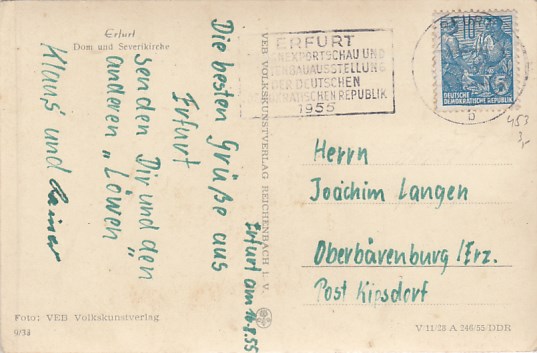 Erfurt
Dom und Severikirche
Die besten Grüße aus
Erfurt
senden Dir und den
anderen „Löwen"
Klaus und
Erfurt am 14.8.55
Foto: VEB Volkskunstverlag
9/38
VEB VOLKSKUNSTVERLAG REICHENBACH I. V.
ERFURT
NEXPORTSCHAU UND
ENBAUAUSSTELLUNG
DER DEUTSCHEN
KRATISCHEN REPUBLIK
1955
10
5
DEUTSCHE
DEMOKRATISCHE REPUBLIK
b
453
3,-
Herrn
Joachim Langen
Oberbärenburg/Erz.
Post Kipsdorf
V/11/28 A 246/55 DDR